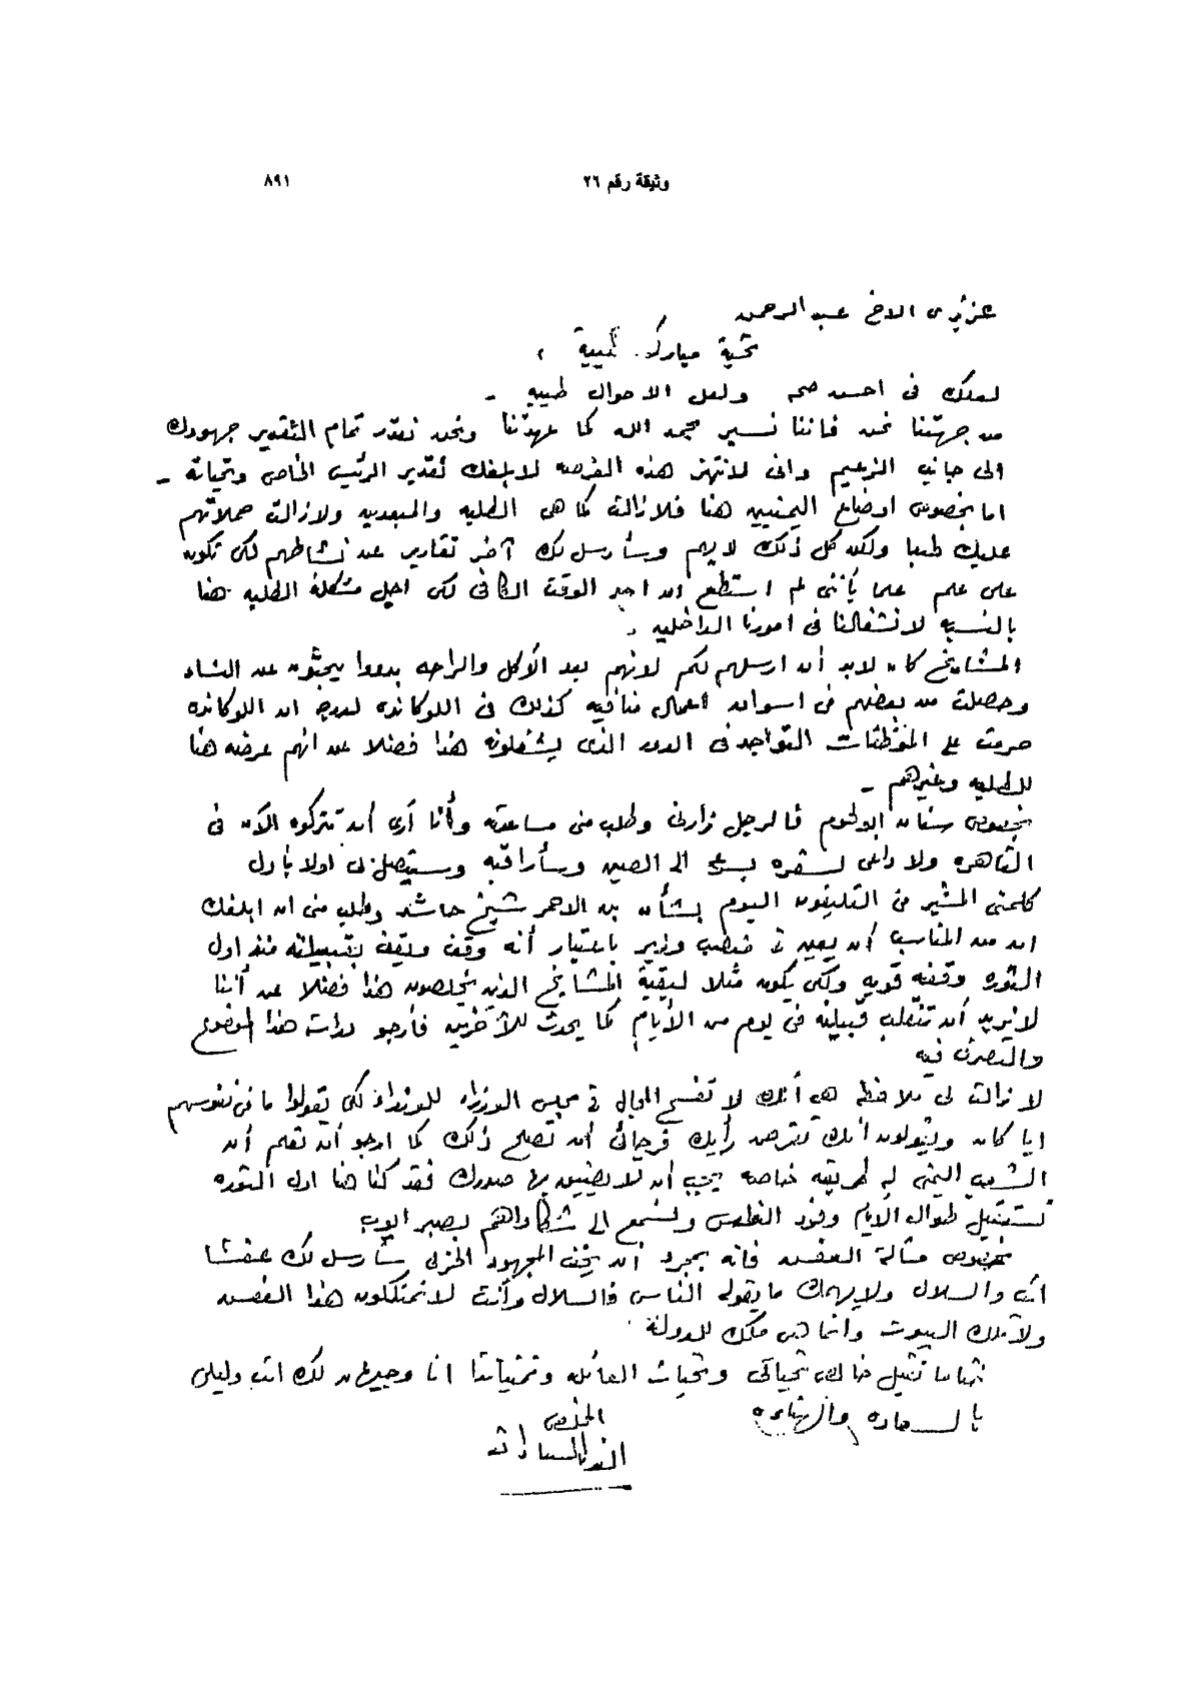 وثيقة رقم ٢٦
٨٩١
عزيزى الاخ عبدالرحمن
تحية مباركة طيبة ،
لعلك فى احسن صحه ولعل الاحوال طيبه -
من جهتنا نحن فاننا نسير بحمد الله كما عهدتنا ونحن نقدر تمام التقدير جهودك
الى جانب الزعيم وانى لانتهز هذه الفرصه لابلغك تقدير الرئيس الخاص وتحياته -
اما بخصوص اوضاع اليمنيين هنا فلازالت كما هى الطلبه والمبعدين ولازالت حملاتهم
عليك طبعا ولكن كل ذلك لا يهم وسأرسل لك آخر تقارير عن نشاطهم لكى تكون
على علم علما بأننى لم استطع ان اجد الوقت الكافى لكى احل مشكلة الطلبه هنا
بالنسبه لانشغالنا فى امورنا الداخليه .
المشايخ كان لابد أن ارسلهم لكم لانهم بعد الأكل والراحه بدءوا يبحثون عن النساء
وحصلت من بعضهم فى اسوان اعمال منافيه كذلك فى اللوكانده لدرجه ان اللوكانده
حرمت على الموظفات التواجد فى الدور الذى يشغلونه هذا فضلا عن انهم عرضه هنا
للطلبه وغيرهم -
بخصوص سنان ابولحوم فالرجل زارنى وطلب منى مساعدته وأنا أرى أن تتركوه الآن فى
القاهره ولا داعى لسفره بسرعه الى الصين وسأراقبه وسيتصل بى اولا بأول
كلمنى المشير فى التليفون اليوم بشأن بن الاحمر شيخ حاشد وطلب منى ان ابلغك
ان من المناسب أن يعين فى منصب وزير باعتبار أنه وقف ويقف بقبيلته منذ اول
الثوره وقفه قويه ولكى يكون مثلا لبقية المشايخ الذين يخلصون هذا فضلا عن أننا
لا نريد أن تنقلب قبيلته فى يوم من الأيام كما يحدث للآخرين فأرجو دراسة هذا الموضوع
والتصرف فيه
لا زالت لى ملاحظه هى أنك لا تفسح المجال فى مجلس الوزراء للوزراء لكى يقولوا ما فى نفوسهم
ايا كان ويقولون أنك تفرض رأيك فرجائى أن تصلح ذلك كما ارجو أن تعلم أن
الشعب اليمنى له طريقه خاصه يجب أن لا يضيق بها صدرك فقد كنا هنا اول الثوره
نستقبل طوال الأيام وفود الفلاحين ونستمع الى شكاواهم بصبر ايوب
بخصوص مسألة العفش فانه بمجرد أن يخف المجهود الحربى سأرسل لك عفشا
انت والسلال ولايهمك ما يقوله الناس فالسلال وأنت لا تمتلكون هذا العفش
ولا تلك البيوت وانما هى ملك للدولة .
ختاما تقبل خالص تحياتى وتحيات العائله وتمنياتنا انا وجيهان لك انت وليلى
بالسعاده والهناءه
المخلص
انور السادات